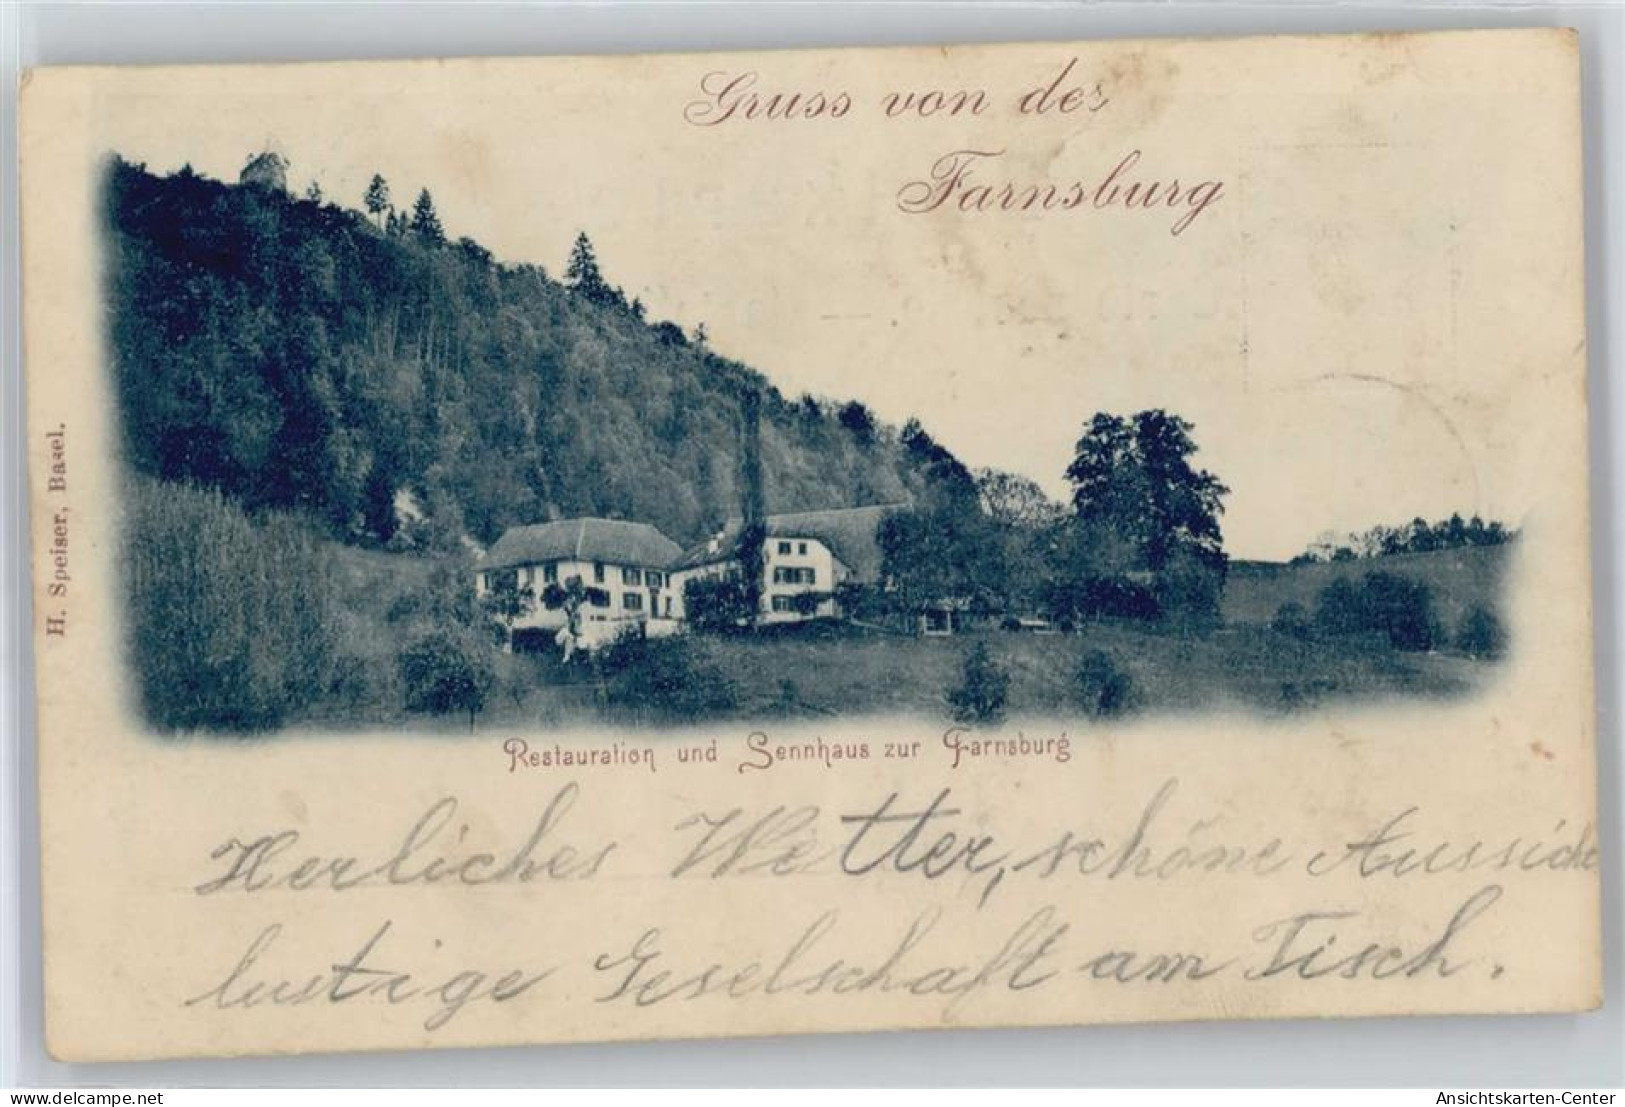 Gruss von der
Farnsburg
H. Speiser, Basel.
Restauration und Sennhaus zur Farnsburg
Herliches Wetter, schöne Aussicht
lustige Geselschaft am Tisch.
www.delcampe.net
Ansichtskarten-Center